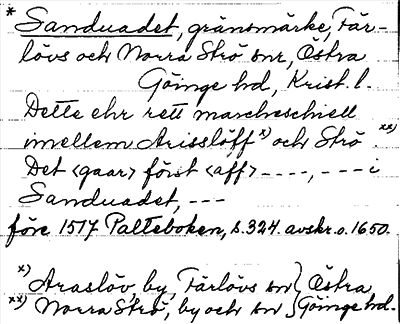 * Sanduadet, gränsmärke, Fär-
lövs och Norra Strö snr, Östra
Göinge hd, Krist. l.
Dette ehr rett marcheschiell
imellem Arisslöff x) och Strö. xx)
Det <gaar> först <aff> ----, --- i
Sanduadet, ---
före 1517 Palteboken, s. 324. avskr. o. 1650.
x) Araslöv, by, Färlövs sn } Östra
xx) Norra Strö, by och sn } Göinge hd.